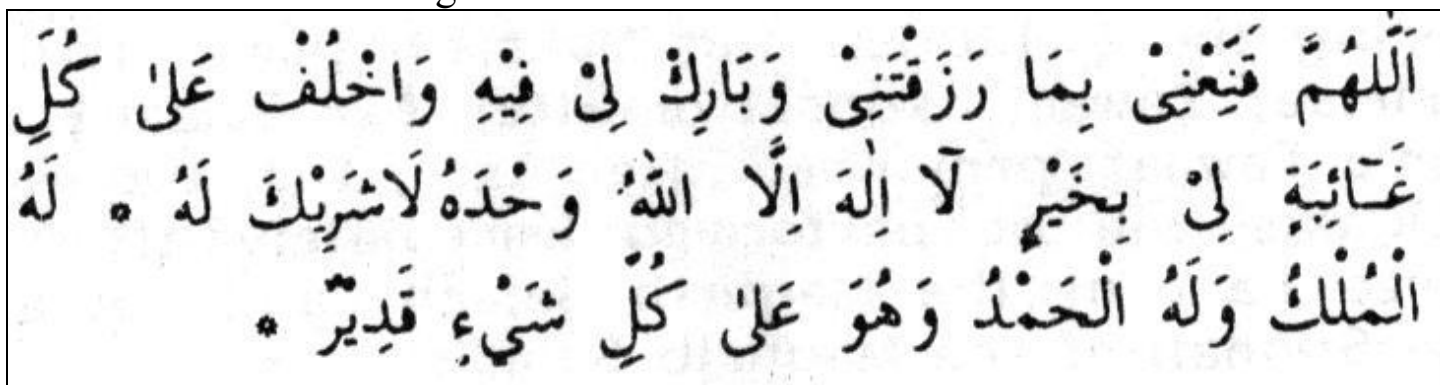 اَللّٰهُمَّ قَنِّعْنِىْ بِمَا رَزَقْتَنِىْ وَبَارِكْ لِىْ فِيْهِ وَاخْلُفْ عَلىٰ كُلِّ
غَـآئِبَةٍ لِىْ بِخَيْرٍ لَآ اِلٰهَ اِلَّا اللّٰهُ وَحْدَهُ لَاشَرِيْكَ لَهُ * لَهُ
الْمُلْكُ وَلَهُ الْحَمْدُ وَهُوَ عَلىٰ كُلِّ شَيْءٍ قَدِيْرٌ *